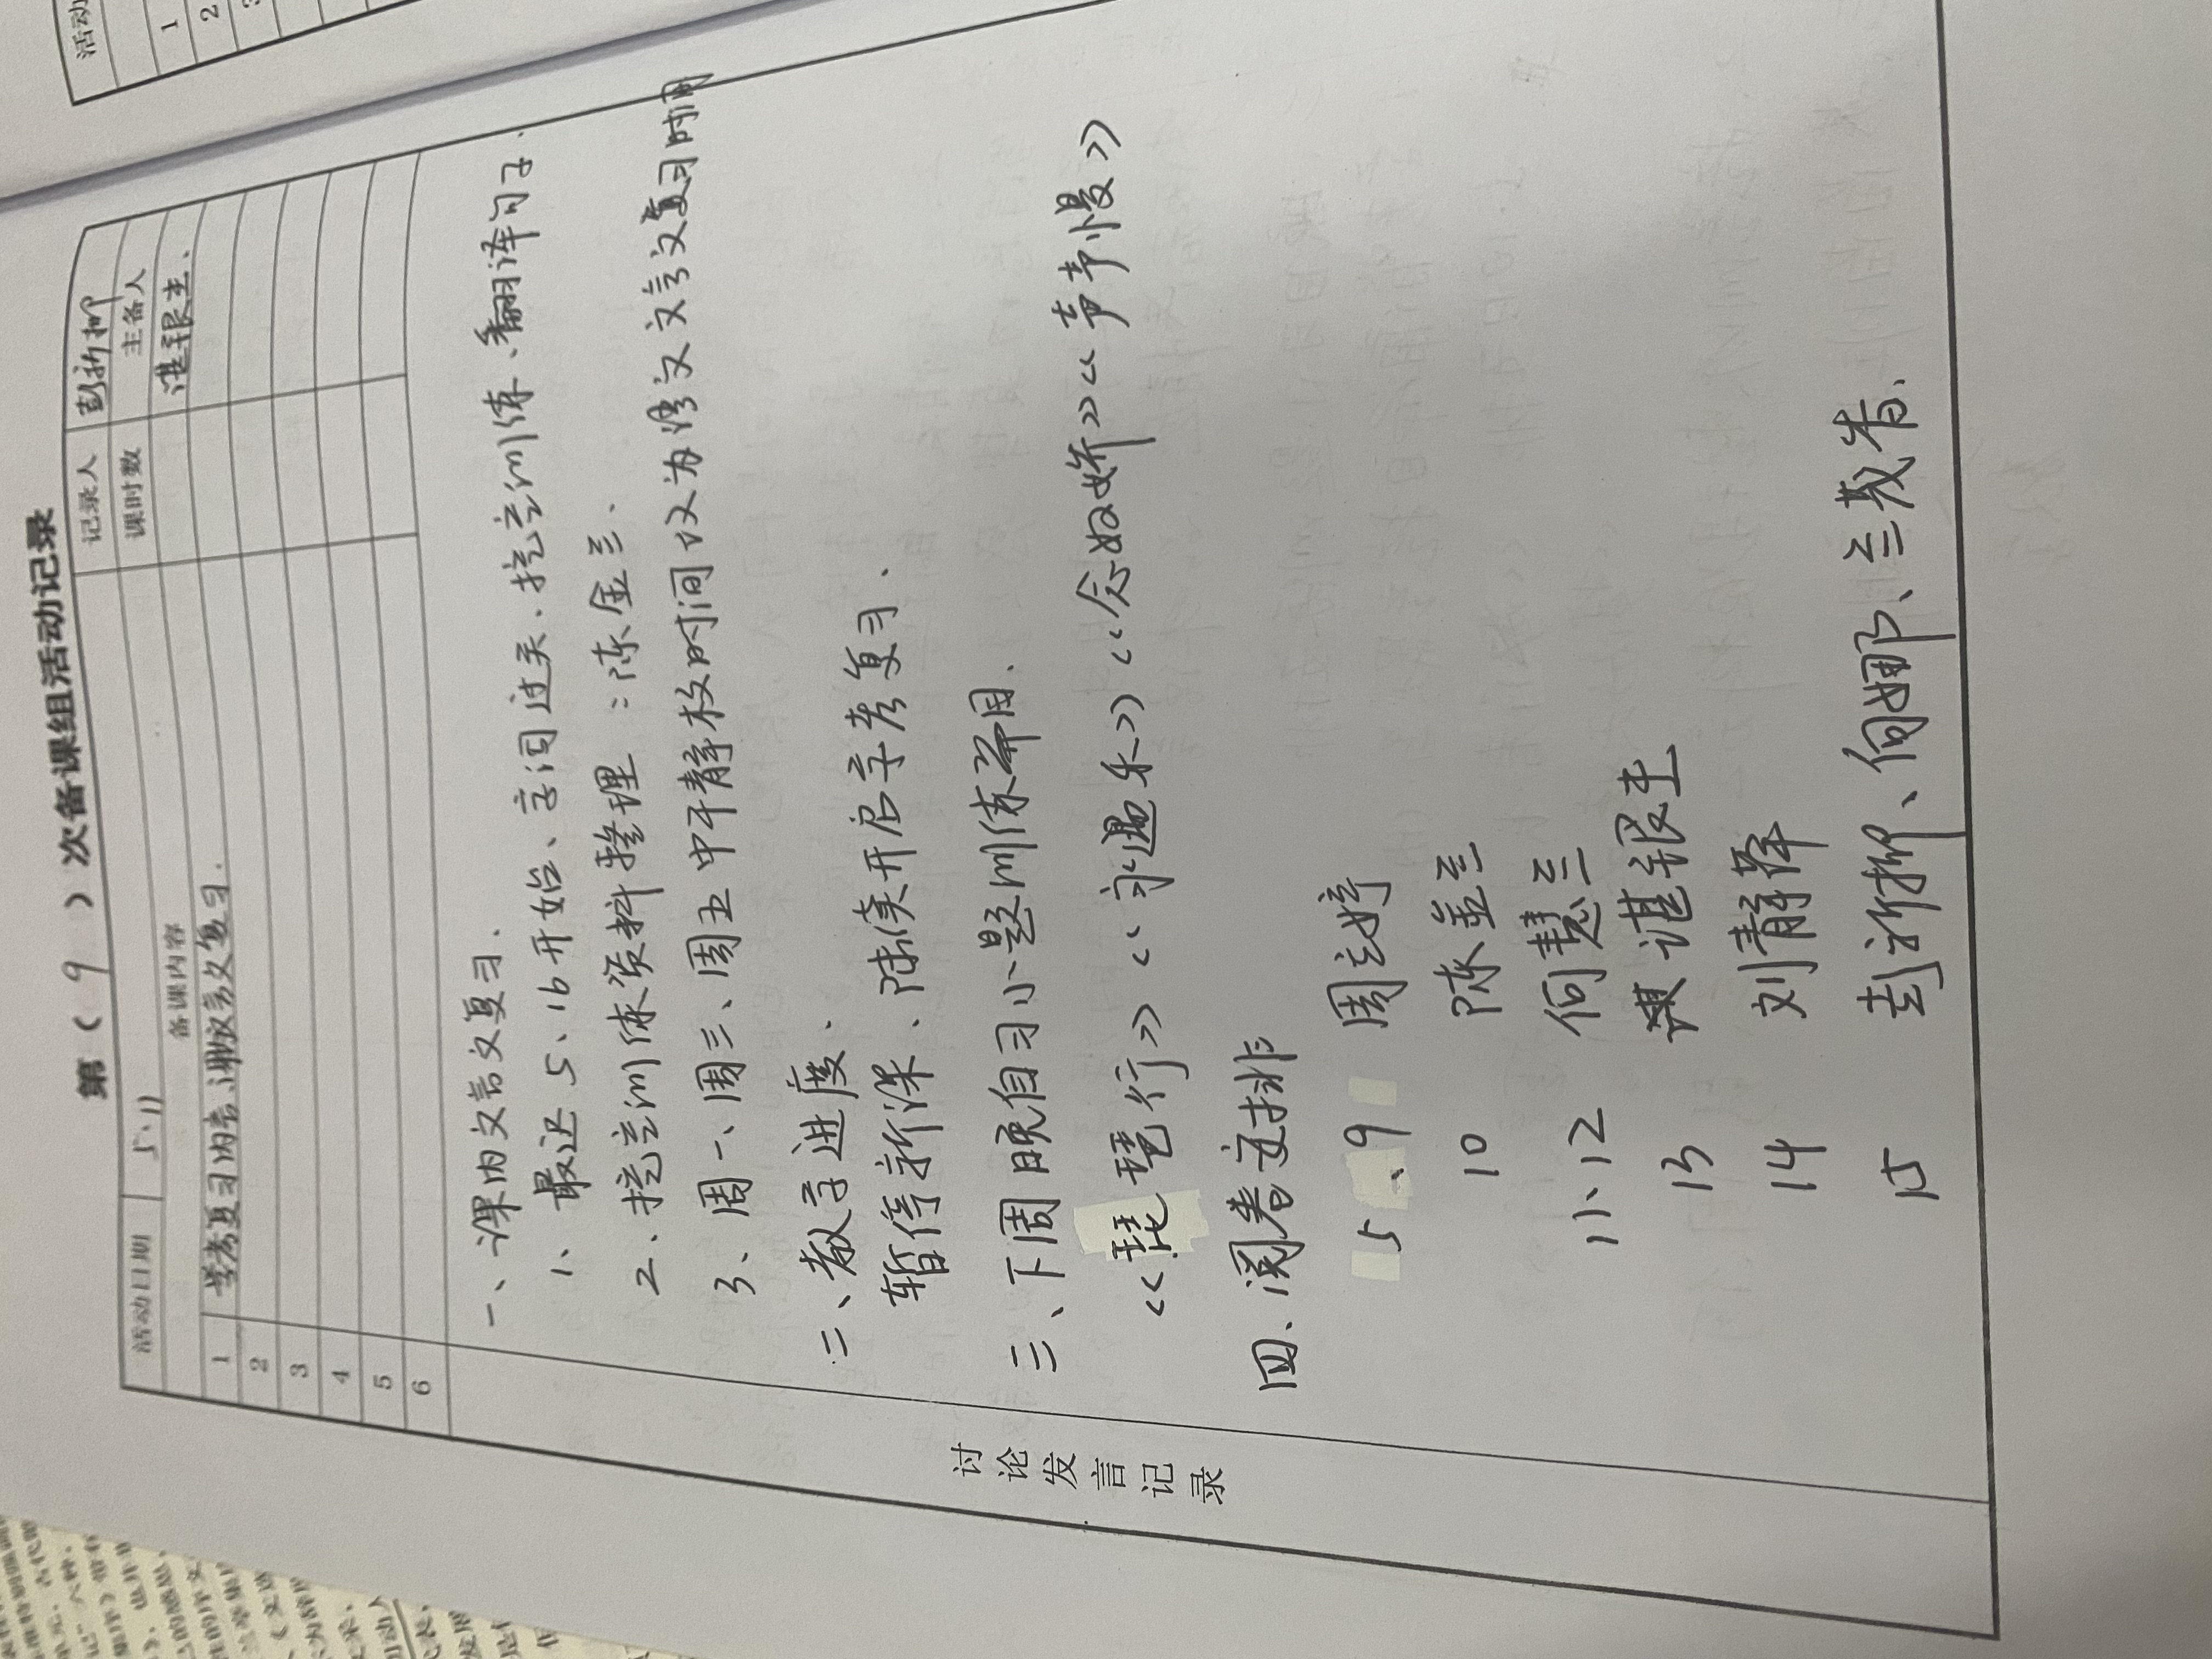 第（9）次备课组活动记录
活动日期 5.11 记录人 彭新柳
备课内容 课时数 主备人
1 学考复习内容、课内文言文复习. 谌银主.
2
3
4
5
6
讨论发言记录
一、课内文言文复习.
1、最迟5、16开始、字词过关、挖空训练、翻译句子.
2、挖空训练资料整理：陈金兰.
3、周一、周三、周五中午静校时间改为语文文言文复习时间
二、教学进度.
暂停新课、陆续开启学考复习.
三、下周晚自习小题训练篇目.
《琵琶行》《永遇乐》《念奴娇》《声声慢》
四、阅卷安排
5、9 周云婷
10 陈金兰
11、12 何慧兰
13 谌银主
14 刘静
15 彭新柳、何娜、兰
活动
1
2
3